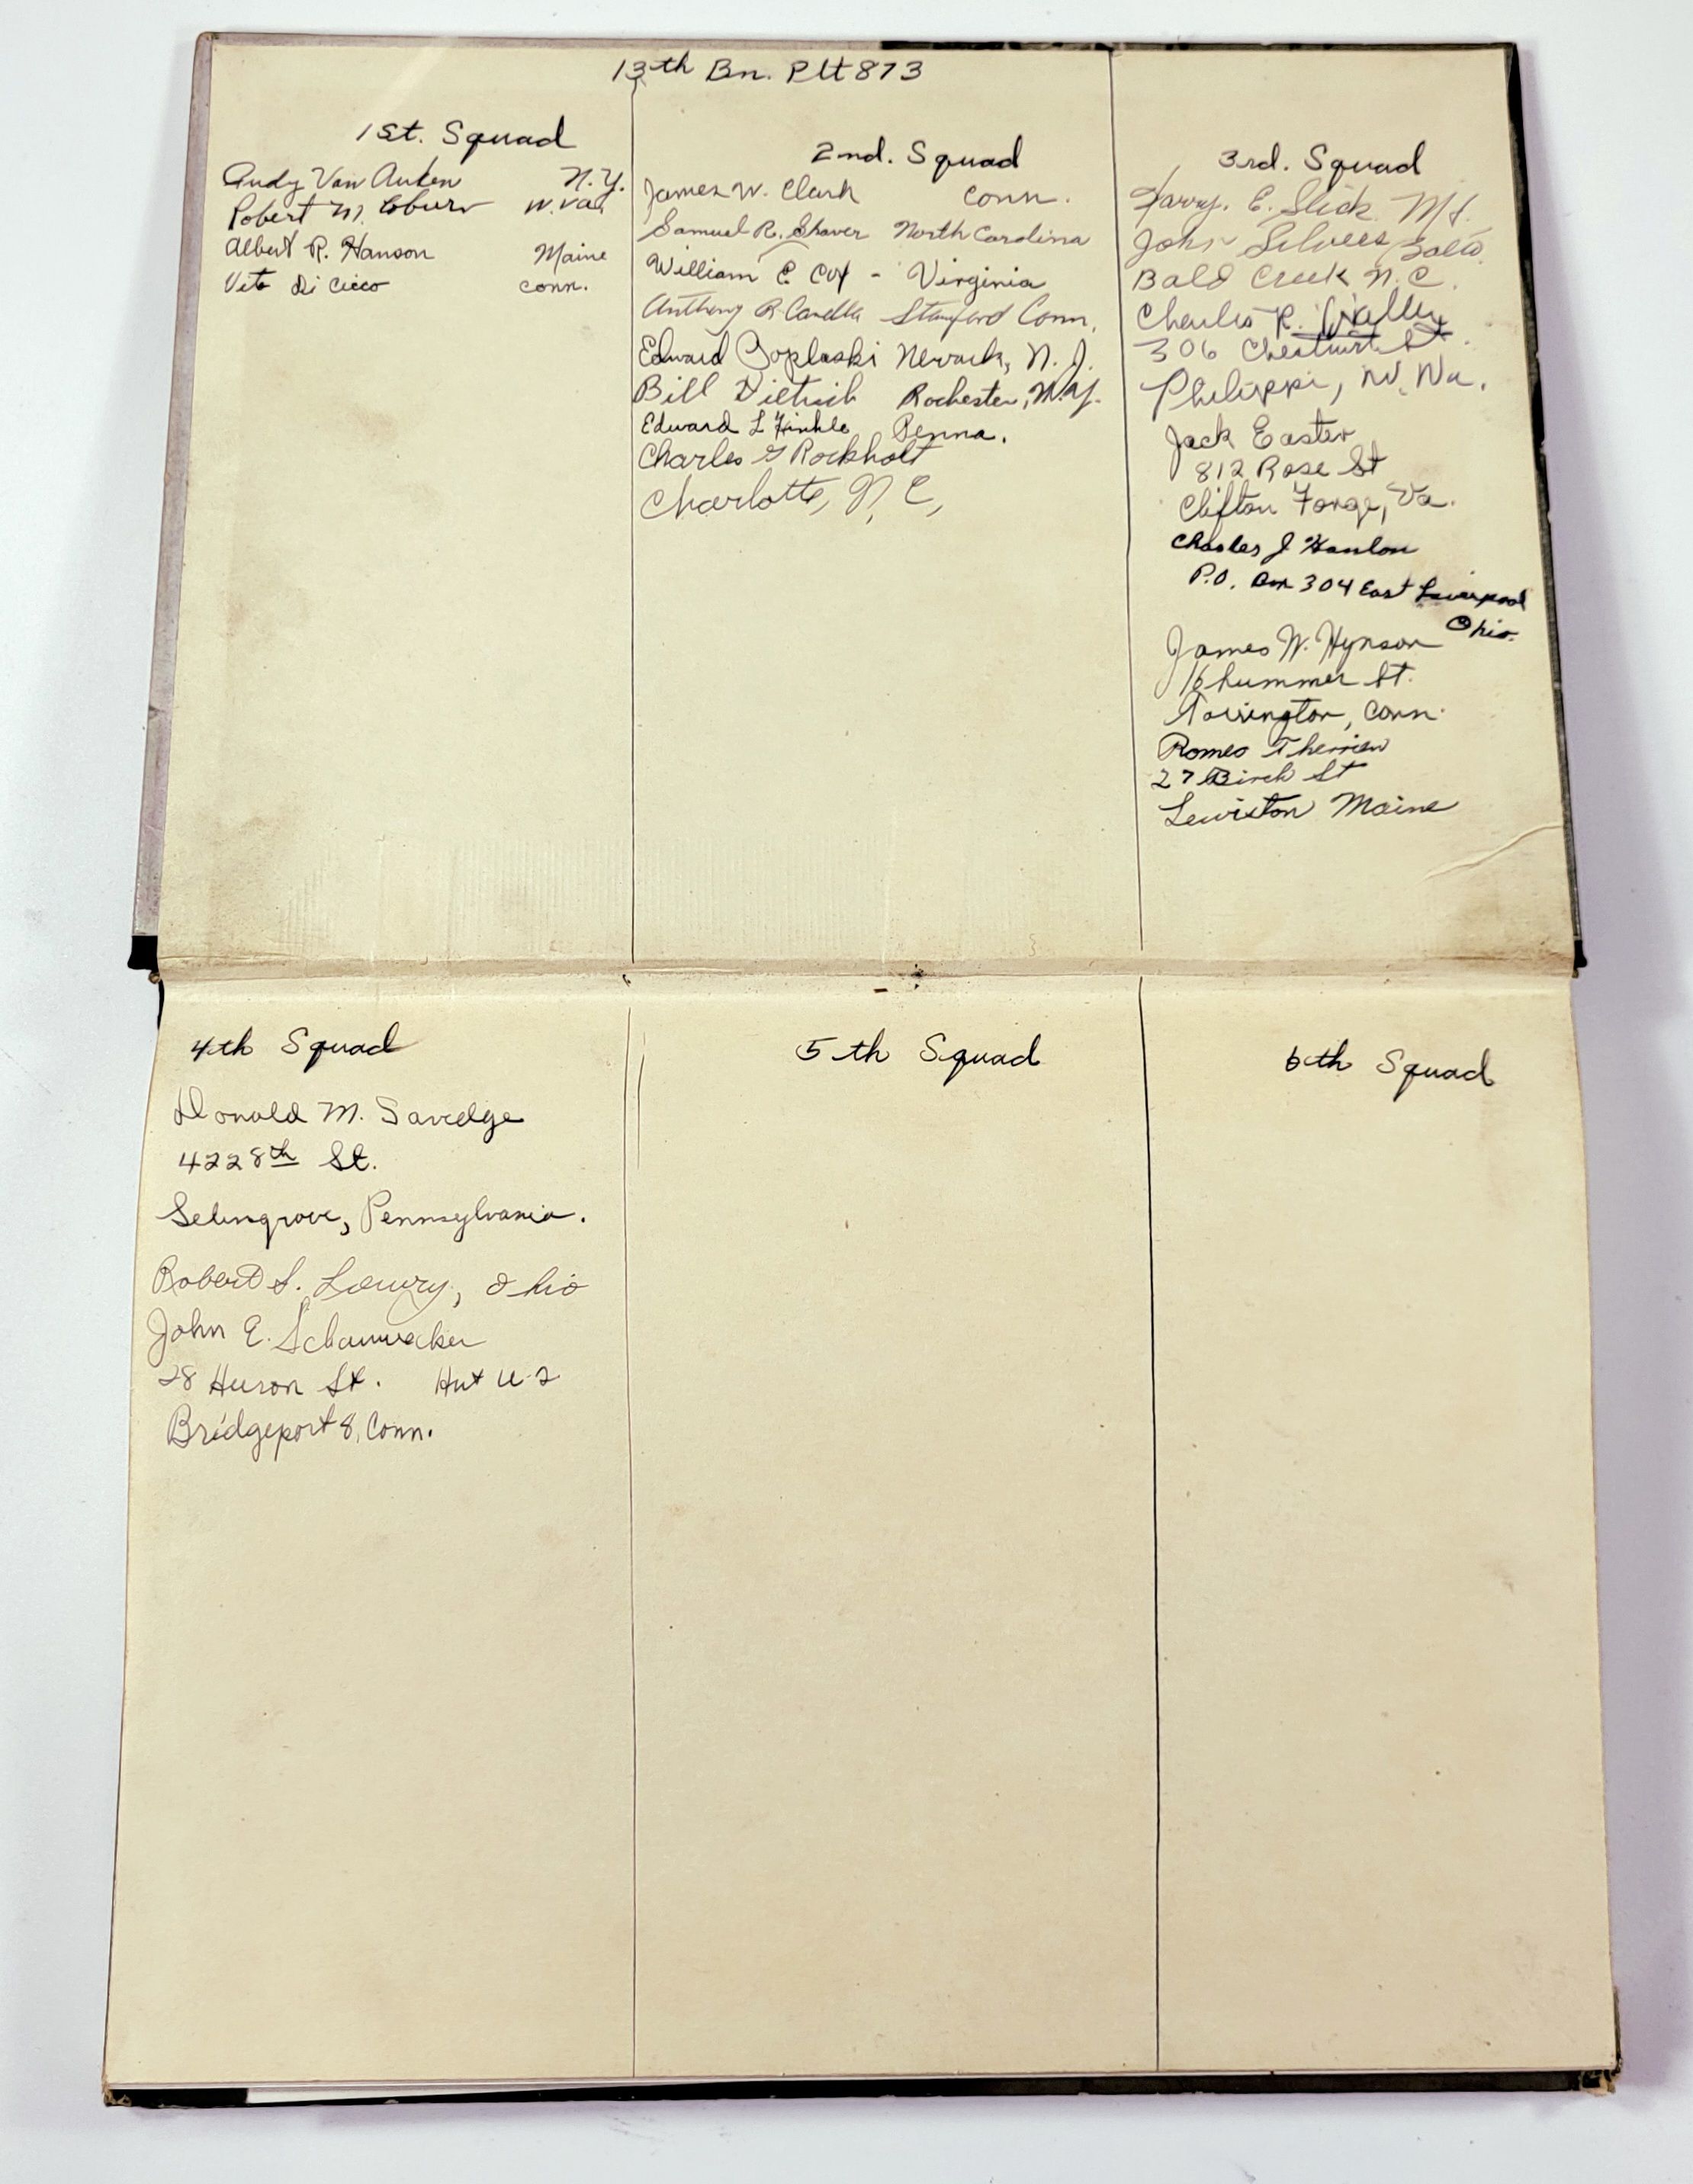 13th Bn. Plt 873
1st. Squad
Andy Van Auken N.Y.
Robert M. W. Va
Albert R. Hanson Maine
Vito Di Cicco Conn.
2nd. Squad
James W. Clark Conn.
Samuel R. Shaver North Carolina
William E. Cox - Virginia
Anthony R Canella Stamford Conn.
Edward Newark, N.J.
Bill Dietrich Rochester, N.Y.
Edward L Hinkle Penna.
Charles G Rockholt
Charlotte, N.C,
3rd. Squad
Harry. E. Slick Md.
John Silvers
Bald Creek N.C.
Charles R.
306 Chestnut St.
Philippi, W. Va.
Jack Easter
812 Rose St
Clifton Forge, Va.
Charles J Hanlon
P.O. Box 304 East Liverpool
Ohio.
James W. Hynson
16 Summer St.
Torrington, Conn.
Romeo Therrien
27 Birch St
Lewiston Maine
4th Squad
Donald M. Savidge
422 8th St.
Selinsgrove, Pennsylvania.
Robert S. Lowry, Ohio
John E. Schanwecker
28 Huron St. Hut U-2
Bridgeport 8, Conn.
5th Squad
6th Squad